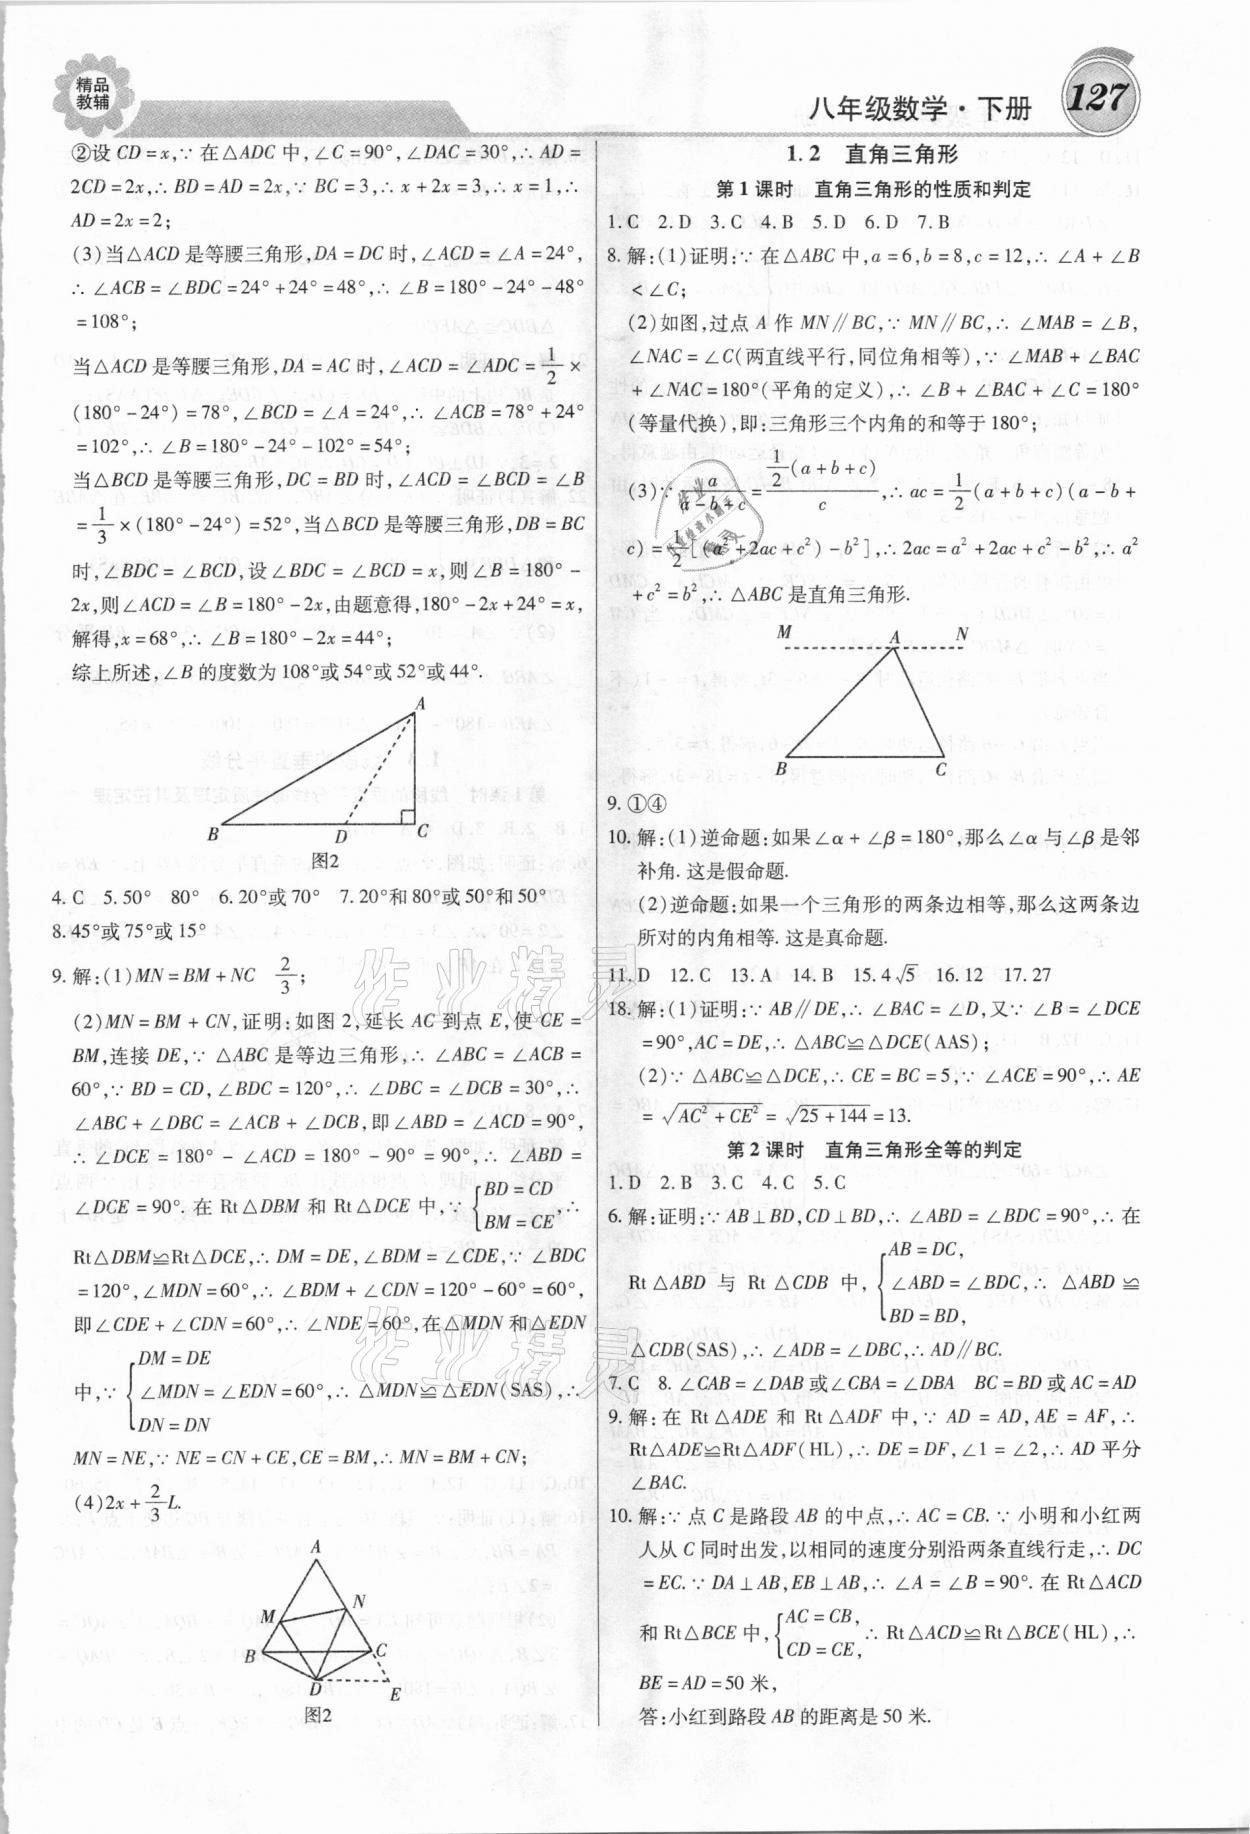 精品
教辅
八年级数学·下册
127
②设CD=x,∵在△ADC中,∠C=90°,∠DAC=30°,∴AD=
2CD=2x,∴BD=AD=2x,∵BC=3,∴x+2x=3,∴x=1,∴
AD=2x=2;
(3)当△ACD是等腰三角形,DA=DC时,∠ACD=∠A=24°,
∴∠ACB=∠BDC=24°+24°=48°,∴∠B=180°-24°-48°
=108°;
当△ACD是等腰三角形,DA=AC时,∠ACD=∠ADC=1/2×
(180°-24°)=78°,∠BCD=∠A=24°,∴∠ACB=78°+24°
=102°,∴∠B=180°-24°-102°=54°;
当△BCD是等腰三角形,DC=BD时,∠ACD=∠BCD=∠B
=1/3×(180°-24°)=52°,当△BCD是等腰三角形,DB=BC
时,∠BDC=∠BCD,设∠BDC=∠BCD=x,则∠B=180°-
2x,则∠ACD=∠B=180°-2x,由题意得,180°-2x+24°=x,
解得,x=68°,∴∠B=180°-2x=44°;
综上所述,∠B的度数为108°或54°或52°或44°.
A
B
D
C
图2
4.C 5.50° 80° 6.20°或70° 7.20°和80°或50°和50°
8.45°或75°或15°
9.解:(1)MN=BM+NC 2/3;
(2)MN=BM+CN,证明:如图2,延长AC到点E,使CE=
BM,连接DE,∵△ABC是等边三角形,∴∠ABC=∠ACB=
60°,∵BD=CD,∠BDC=120°,∴∠DBC=∠DCB=30°,∴
∠ABC+∠DBC=∠ACB+∠DCB,即∠ABD=∠ACD=90°,
∴∠DCE=180°-∠ACD=180°-90°=90°,∴∠ABD=
∠DCE=90°.在Rt△DBM和Rt△DCE中,∵{BD=CD
BM=CE,∴
Rt△DBM≌Rt△DCE,∴DM=DE,∠BDM=∠CDE,∵∠BDC
=120°,∠MDN=60°,∴∠BDM+∠CDN=120°-60°=60°,
即∠CDE+∠CDN=60°,∴∠NDE=60°,在△MDN和△EDN
DM=DE
中,∵{∠MDN=∠EDN=60°,∴△MDN≌△EDN(SAS),∴
DN=DN
MN=NE,∵NE=CN+CE,CE=BM,∴MN=BM+CN;
(4)2x+2/3L.
A
M
N
B
C
D
E
图2
1.2 直角三角形
第1课时 直角三角形的性质和判定
1.C 2.D 3.C 4.B 5.D 6.D 7.B
8.解:(1)证明:∵在△ABC中,a=6,b=8,c=12,∴∠A+∠B
<∠C;
(2)如图,过点A作MN∥BC,∵MN∥BC,∴∠MAB=∠B,
∠NAC=∠C(两直线平行,同位角相等),∵∠MAB+∠BAC
+∠NAC=180°(平角的定义),∴∠B+∠BAC+∠C=180°
(等量代换),即:三角形三个内角的和等于180°;
(3)∵a/(a-b+c)=1/2(a+b+c)/c,∴ac=1/2(a+b+c)(a-b+
c)=1/2[(a²+2ac+c²)-b²],∴2ac=a²+2ac+c²-b²,∴a²
+c²=b²,∴△ABC是直角三角形.
M
A
N
B
C
9.①④
10.解:(1)逆命题:如果∠α+∠β=180°,那么∠α与∠β是邻
补角.这是假命题.
(2)逆命题:如果一个三角形的两条边相等,那么这两条边
所对的内角相等.这是真命题.
11.D 12.C 13.A 14.B 15.4√5 16.12 17.27
18.解:(1)证明:∵AB∥DE,∴∠BAC=∠D,又∵∠B=∠DCE
=90°,AC=DE,∴△ABC≌△DCE(AAS);
(2)∵△ABC≌△DCE,∴CE=BC=5,∵∠ACE=90°,∴AE
=√(AC²+CE²)=√(25+144)=13.
第2课时 直角三角形全等的判定
1.D 2.B 3.C 4.C 5.C
6.解:证明:∵AB⊥BD,CD⊥BD,∴∠ABD=∠BDC=90°,∴在
AB=DC,
Rt△ABD与Rt△CDB中,{∠ABD=∠BDC,∴△ABD≌
BD=BD,
△CDB(SAS),∴∠ADB=∠DBC,∴AD∥BC.
7.C 8.∠CAB=∠DAB或∠CBA=∠DBA BC=BD或AC=AD
9.解:在Rt△ADE和Rt△ADF中,∵AD=AD,AE=AF,∴
Rt△ADE≌Rt△ADF(HL),∴DE=DF,∠1=∠2,∴AD平分
∠BAC.
10.解:∵点C是路段AB的中点,∴AC=CB.∵小明和小红两
人从C同时出发,以相同的速度分别沿两条直线行走,∴DC
=EC.∵DA⊥AB,EB⊥AB,∴∠A=∠B=90°.在Rt△ACD
和Rt△BCE中,{AC=CB,
CD=CE,∴Rt△ACD≌Rt△BCE(HL),∴
BE=AD=50米,
答:小红到路段AB的距离是50米.
作业精灵
作业精灵